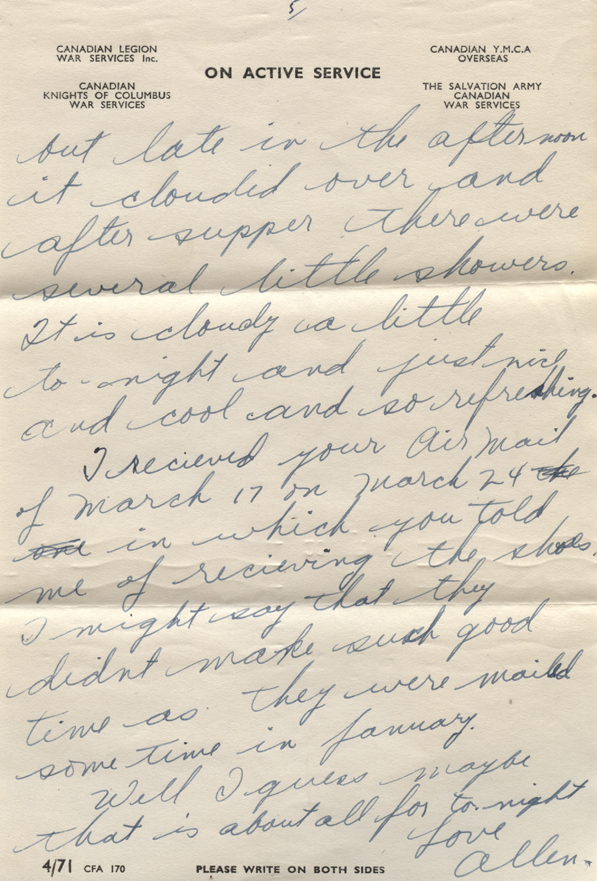 5/
CANADIAN LEGION
WAR SERVICES Inc.
CANADIAN
KNIGHTS OF COLUMBUS
WAR SERVICES
ON ACTIVE SERVICE
CANADIAN Y.M.C.A
OVERSEAS
THE SALVATION ARMY
CANADIAN
WAR SERVICES
but late in the afternoon
it clouded over and
after supper there were
several little showers.
It is cloudy a little
to-night and just nice
and cool and so refreshing.
I recieved your Air Mail
of March 17 on March 24 the
one in which you told
me of recieving the shoes.
I might say that they
didnt make such good
time as they were mailed
some time in January.
Well I guess maybe
that is about all for to-night
Love
Allen-
4/71 CFA 170
PLEASE WRITE ON BOTH SIDES